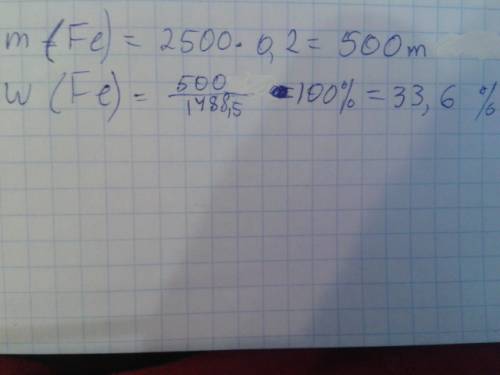 m (Fe) = 2500 · 0,2 = 500 т
w (Fe) = 500/1488,5 = 100% = 33,6 %